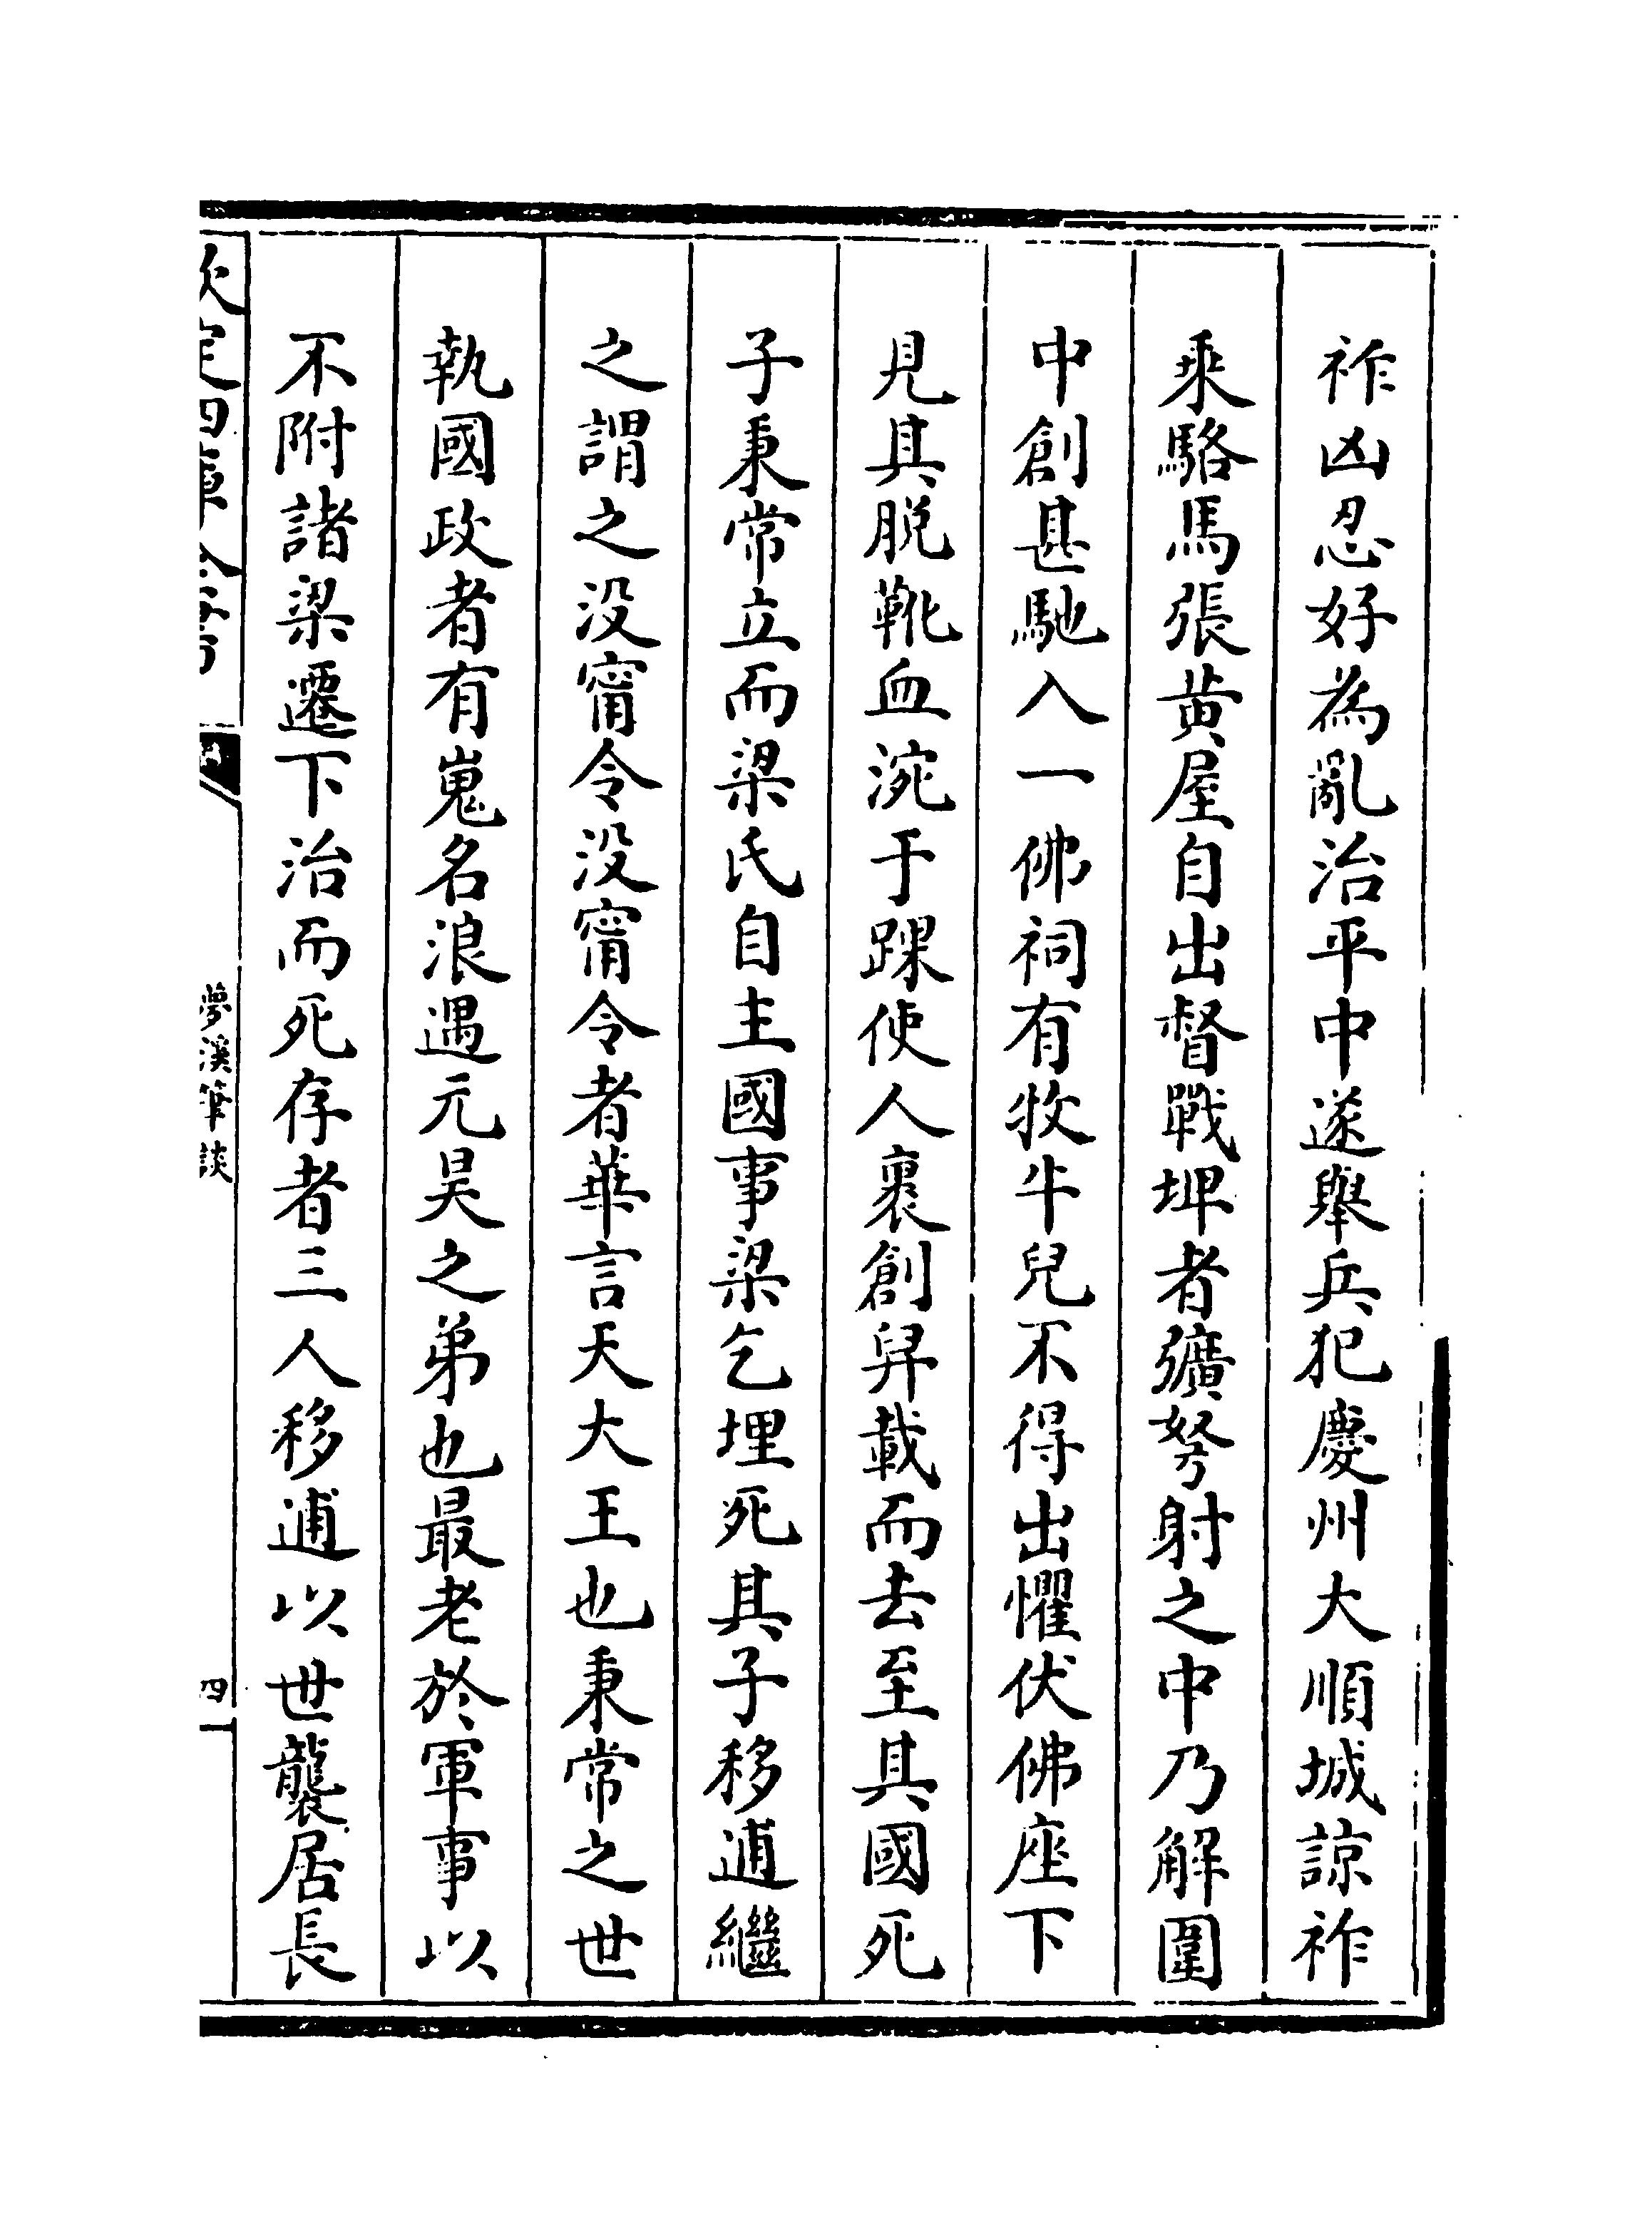 祚凶忍好為亂治平中遂舉兵犯慶州大順城諒祚
乘駱馬張黄屋自出督戰埤者彍弩射之中乃解圍
中創甚馳入一佛祠有牧牛兒不得出懼伏佛座下
見其脱靴血涴于踝使人裹創舁載而去至其國死
子秉常立而梁氏自主國事梁乞埋死其子移逋繼
之謂之没甯令没甯令者華言天大王也秉常之世
執國政者有嵬名浪遇元昊之弟也最老於軍事以
不附諸梁遷下治而死存者三人移逋以世襲居長
欽定四庫全書
夢溪筆談
四